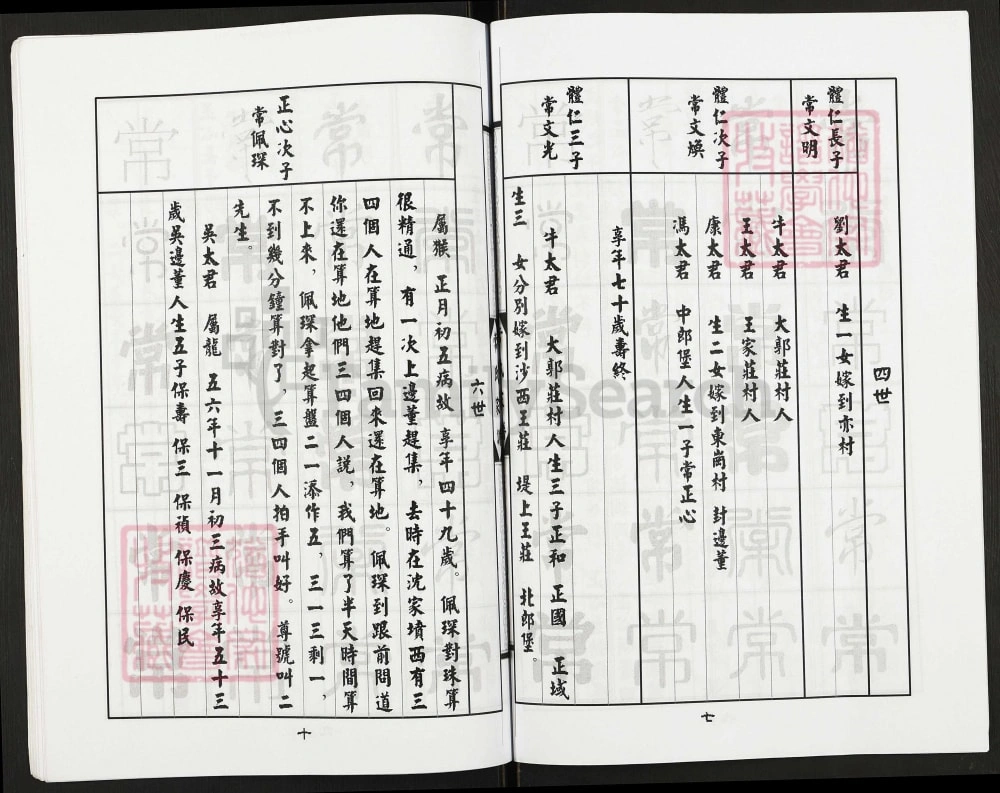 四世
體仁長子
常文明
劉太君 生一女嫁到亦村
體仁次子
常文煥
牛太君 大郭莊村人
王太君 王家莊村人
康太君 生二女嫁到東崗村 封邊董
馮太君 中郎堡人生一子常正心
享年七十歲壽終
體仁三子
常文光
牛太君 大郭莊村人生三子正和 正國 正域
生三 女分別嫁到沙西王莊 堤上王莊 北郎堡。
七
六世
正心次子
常佩琛
屬猴 正月初五病故 享年四十九歲。佩琛對珠算
很精通,有一次上邊董趕集,去時在沈家墳西有三
四個人在算地趕集回來還在算地。佩琛到跟前問道
你還在算地他們三四個人說,我們算了半天時間算
不上來,佩琛拿起算盤二一添作五,三一三剩一,
不到幾分鐘算對了,三四個人拍手叫好。尊號叫二
先生。
吳太君 屬龍 五六年十一月初三病故享年五十三
歲吳邊董人生五子保壽 保三 保禎 保慶 保民
十
FamilySearch